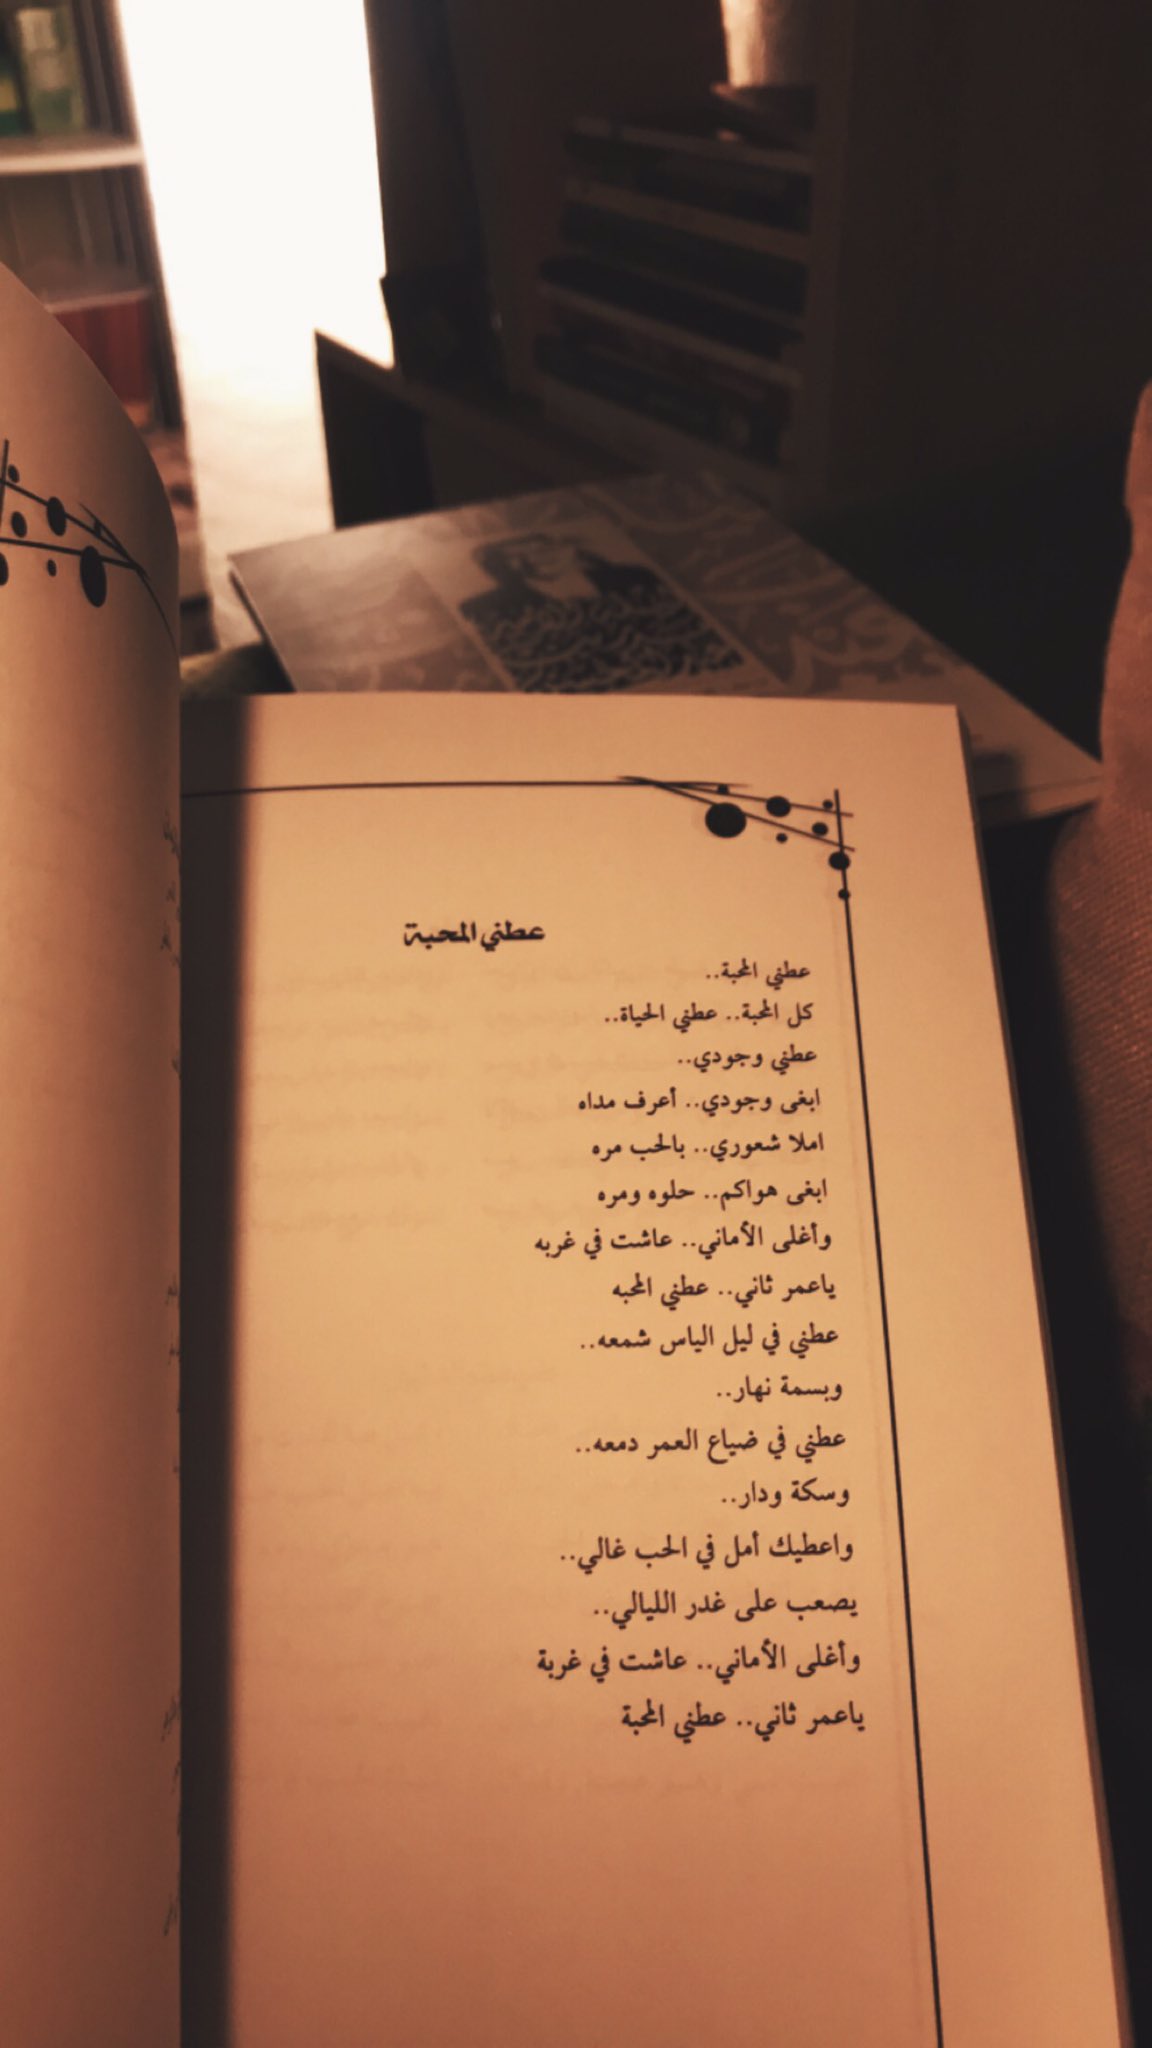 عطني المحبة
عطني المحبة..
كل المحبة.. عطني الحياة..
عطني وجودي..
ابغى وجودي.. أعرف مداه
املا شعوري.. بالحب مره
ابغى هواكم.. حلوه ومره
وأغلى الأماني.. عاشت في غربه
ياعمر ثاني.. عطني المحبه
عطني في ليل الياس شمعه..
وبسمة نهار..
عطني في ضياع العمر دمعه..
وسكة ودار..
واعطيك أمل في الحب غالي..
يصعب على غدر الليالي..
وأغلى الأماني.. عاشت في غربة
ياعمر ثاني.. عطني المحبة